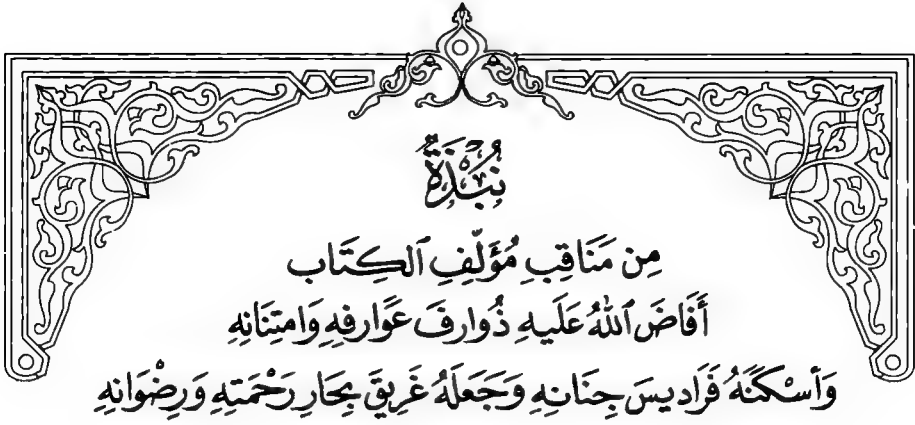 نُبْذَةٌ
مِن مَنَاقِبِ مُؤَلِّفِ ٱلكِتَاب
أَفَاضَ ٱللهُ عَلَيهِ ذُوارفَ عَوَارفِهِ وَامتِنَانِهِ
وَأسْكَنَهُ فَرَاديسَ جِنَانِهِ وَجَعَلَهُ غَرِيقَ بِحَارِ رَحْمَتِهِ وَرِضْوَانِهِ